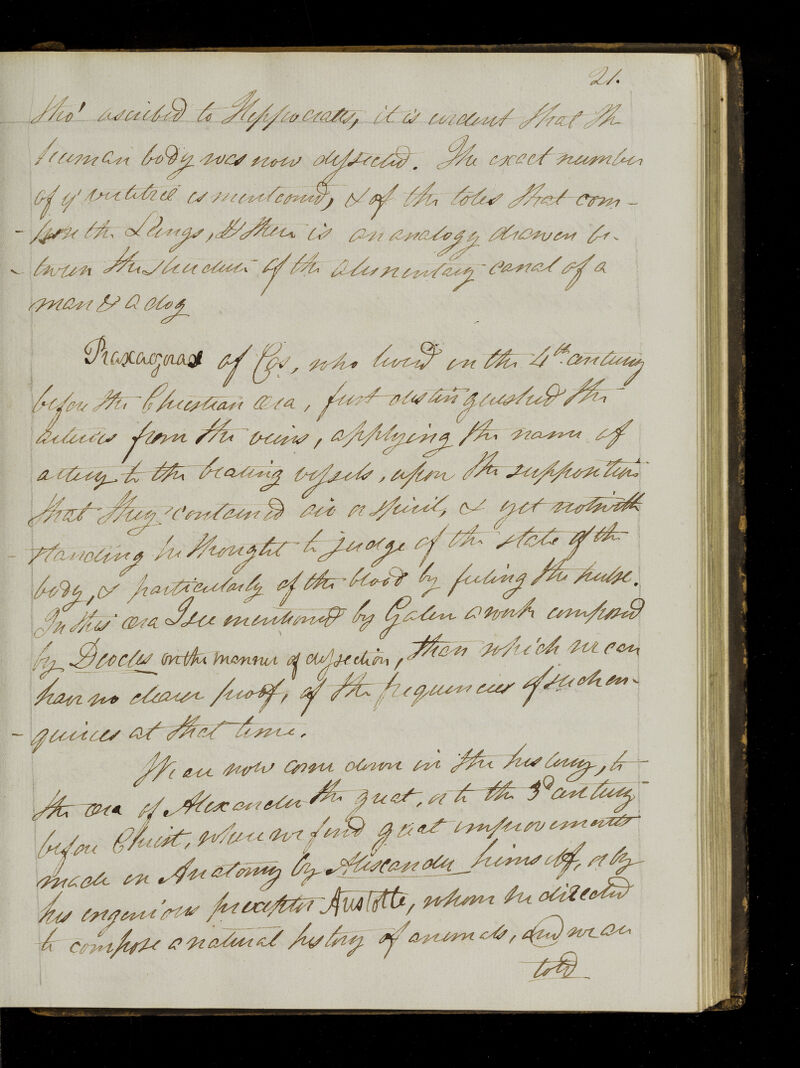 21.
tho' ascribed to Hippocrates, it is evident that the
human body was now dissected. The exact number
of ye vertebræ is mentioned, & of the lobes that com-
pose the Lungs, & there is an analogy drawn be-
tween the structure of the alimentary canal of a
man & a dog
Praxagoras of Cos, who lived in the 4th century
before the Christian æra, first distinguished the
arteries from the veins, applying the name of
artery to the beating vessels, upon the supposition
that they contained air or spirit, & yet notwith
standing he thought to judge of the state of the
body, & particularly of the blood by feeling the pulse.
In this æra I see mentioned by Galen a work composed
by Diocles on the manner of dissection, than which we can
have no clearer proof, of the frequencies of such en-
quiries at that time.
We are now come down in the history, to
the æra of Alexander the great, or to the 3d century
before Christ, where we find great improvements
made in Anatomy by Alexander himself, or by
his ingenious preceptor Aristotle, whom he directed
to compose a natural history of animals, and we are
told